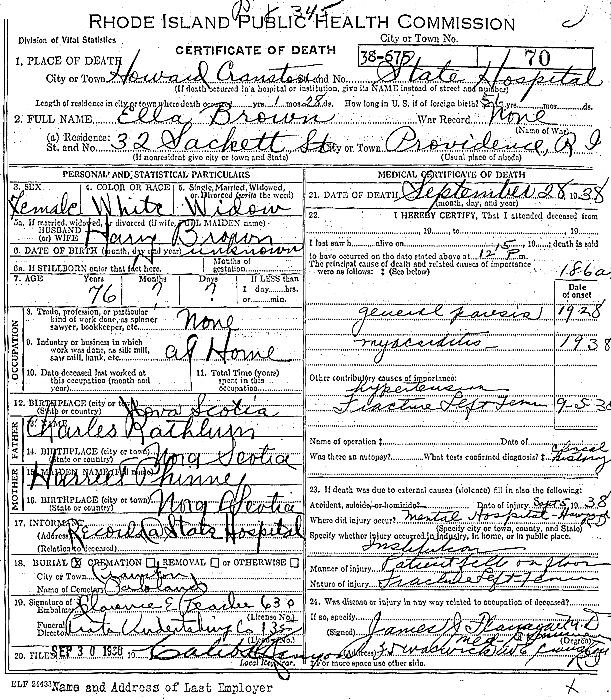 RHODE ISLAND PUBLIC HEALTH COMMISSION
Division of Vital Statistics
City or Town No.
CERTIFICATE OF DEATH
38-575
70
1. PLACE OF DEATH
City or Town Howard Cranston and No. State Hospital
(If death occurred in a hospital or institution, give its NAME instead of street and number)
Length of residence in city or town where death occurred yrs. 1 mos. 28 ds. How long in U. S. if of foreign birth? yrs. mos. ds.
2. FULL NAME Ella Brown War Record None
(Name of War)
(a) Residence: St. and No. 32 Sackett St City or Town Providence, R I
(If nonresident give city or town and State) (Usual place of abode)
PERSONAL AND STATISTICAL PARTICULARS
3. SEX Female
4. COLOR OR RACE White
5. Single, Married, Widowed, or Divorced (write the word) Widow
5a. If married, widowed, or divorced (if wife, FULL MAIDEN name)
HUSBAND or WIFE Harry Brown
6. DATE OF BIRTH (month, day and year) unknown
6a. If STILLBORN enter that fact here. Months of gestation
7. AGE Years 76 Months ? Days ? If LESS than 1 day hrs. or min.
OCCUPATION
8. Trade, profession, or particular kind of work done, as spinner sawyer, bookkeeper, etc. None
9. Industry or business in which work was done, as silk mill, saw mill, bank, etc. at Home
10. Date deceased last worked at this occupation (month and year)
11. Total Time (years) spent in this occupation
12. BIRTHPLACE (city or town) (State or country) Nova Scotia
FATHER
13. NAME Charles Rathburn
14. BIRTHPLACE (city or town) (State or country) Nova Scotia
MOTHER
15. MAIDEN NAME (full name) Harriet Phinney
16. BIRTHPLACE (city or town) (State or country) Nova Scotia
17. INFORMANT Records State Hospital
(Address)
(Relation to deceased)
18. BURIAL X CREMATION REMOVAL or OTHERWISE
City or Town Cranston
Name of Cemetery
19. Signature of Embalmer Clarence E 630
(License No.)
Funeral Director Undertaking Co 135
(License No.)
20. FILED SEP 30 1938
Local Registrar.
MEDICAL CERTIFICATE OF DEATH
21. DATE OF DEATH September 28 1938
(month, day, and year)
22. I HEREBY CERTIFY, That I attended deceased from
19 to 19
I last saw h alive on 19 death is said
to have occurred on the date stated above at 12 15 P m.
The principal cause of death and related causes of importance were as follows: ‡ (See below)
186a
Date of onset
general paresis 1928
myocarditis 1938
Other contributory causes of importance:
Hypertension
Fracture Left Femur 9-5-38
Name of operation ‡ Date of
Was there an autopsy? What tests confirmed diagnosis? ‡ clinical history
23. If death was due to external causes (violence) fill in also the following:
Accident, suicide, or homicide? Date of injury Sept 5, 1938
Where did injury occur? Mental Hospital Howard RI
(Specify city or town, county, and State)
Specify whether injury occurred in industry, in home, or in public place.
Institution
Manner of injury Patient fell on floor
Nature of injury Fracture Left Femur
24. Was disease or injury in any way related to occupation of deceased?
If so, specify
(Signed) James
(Degree)
For more space use other side.
Name and Address of Last Employer